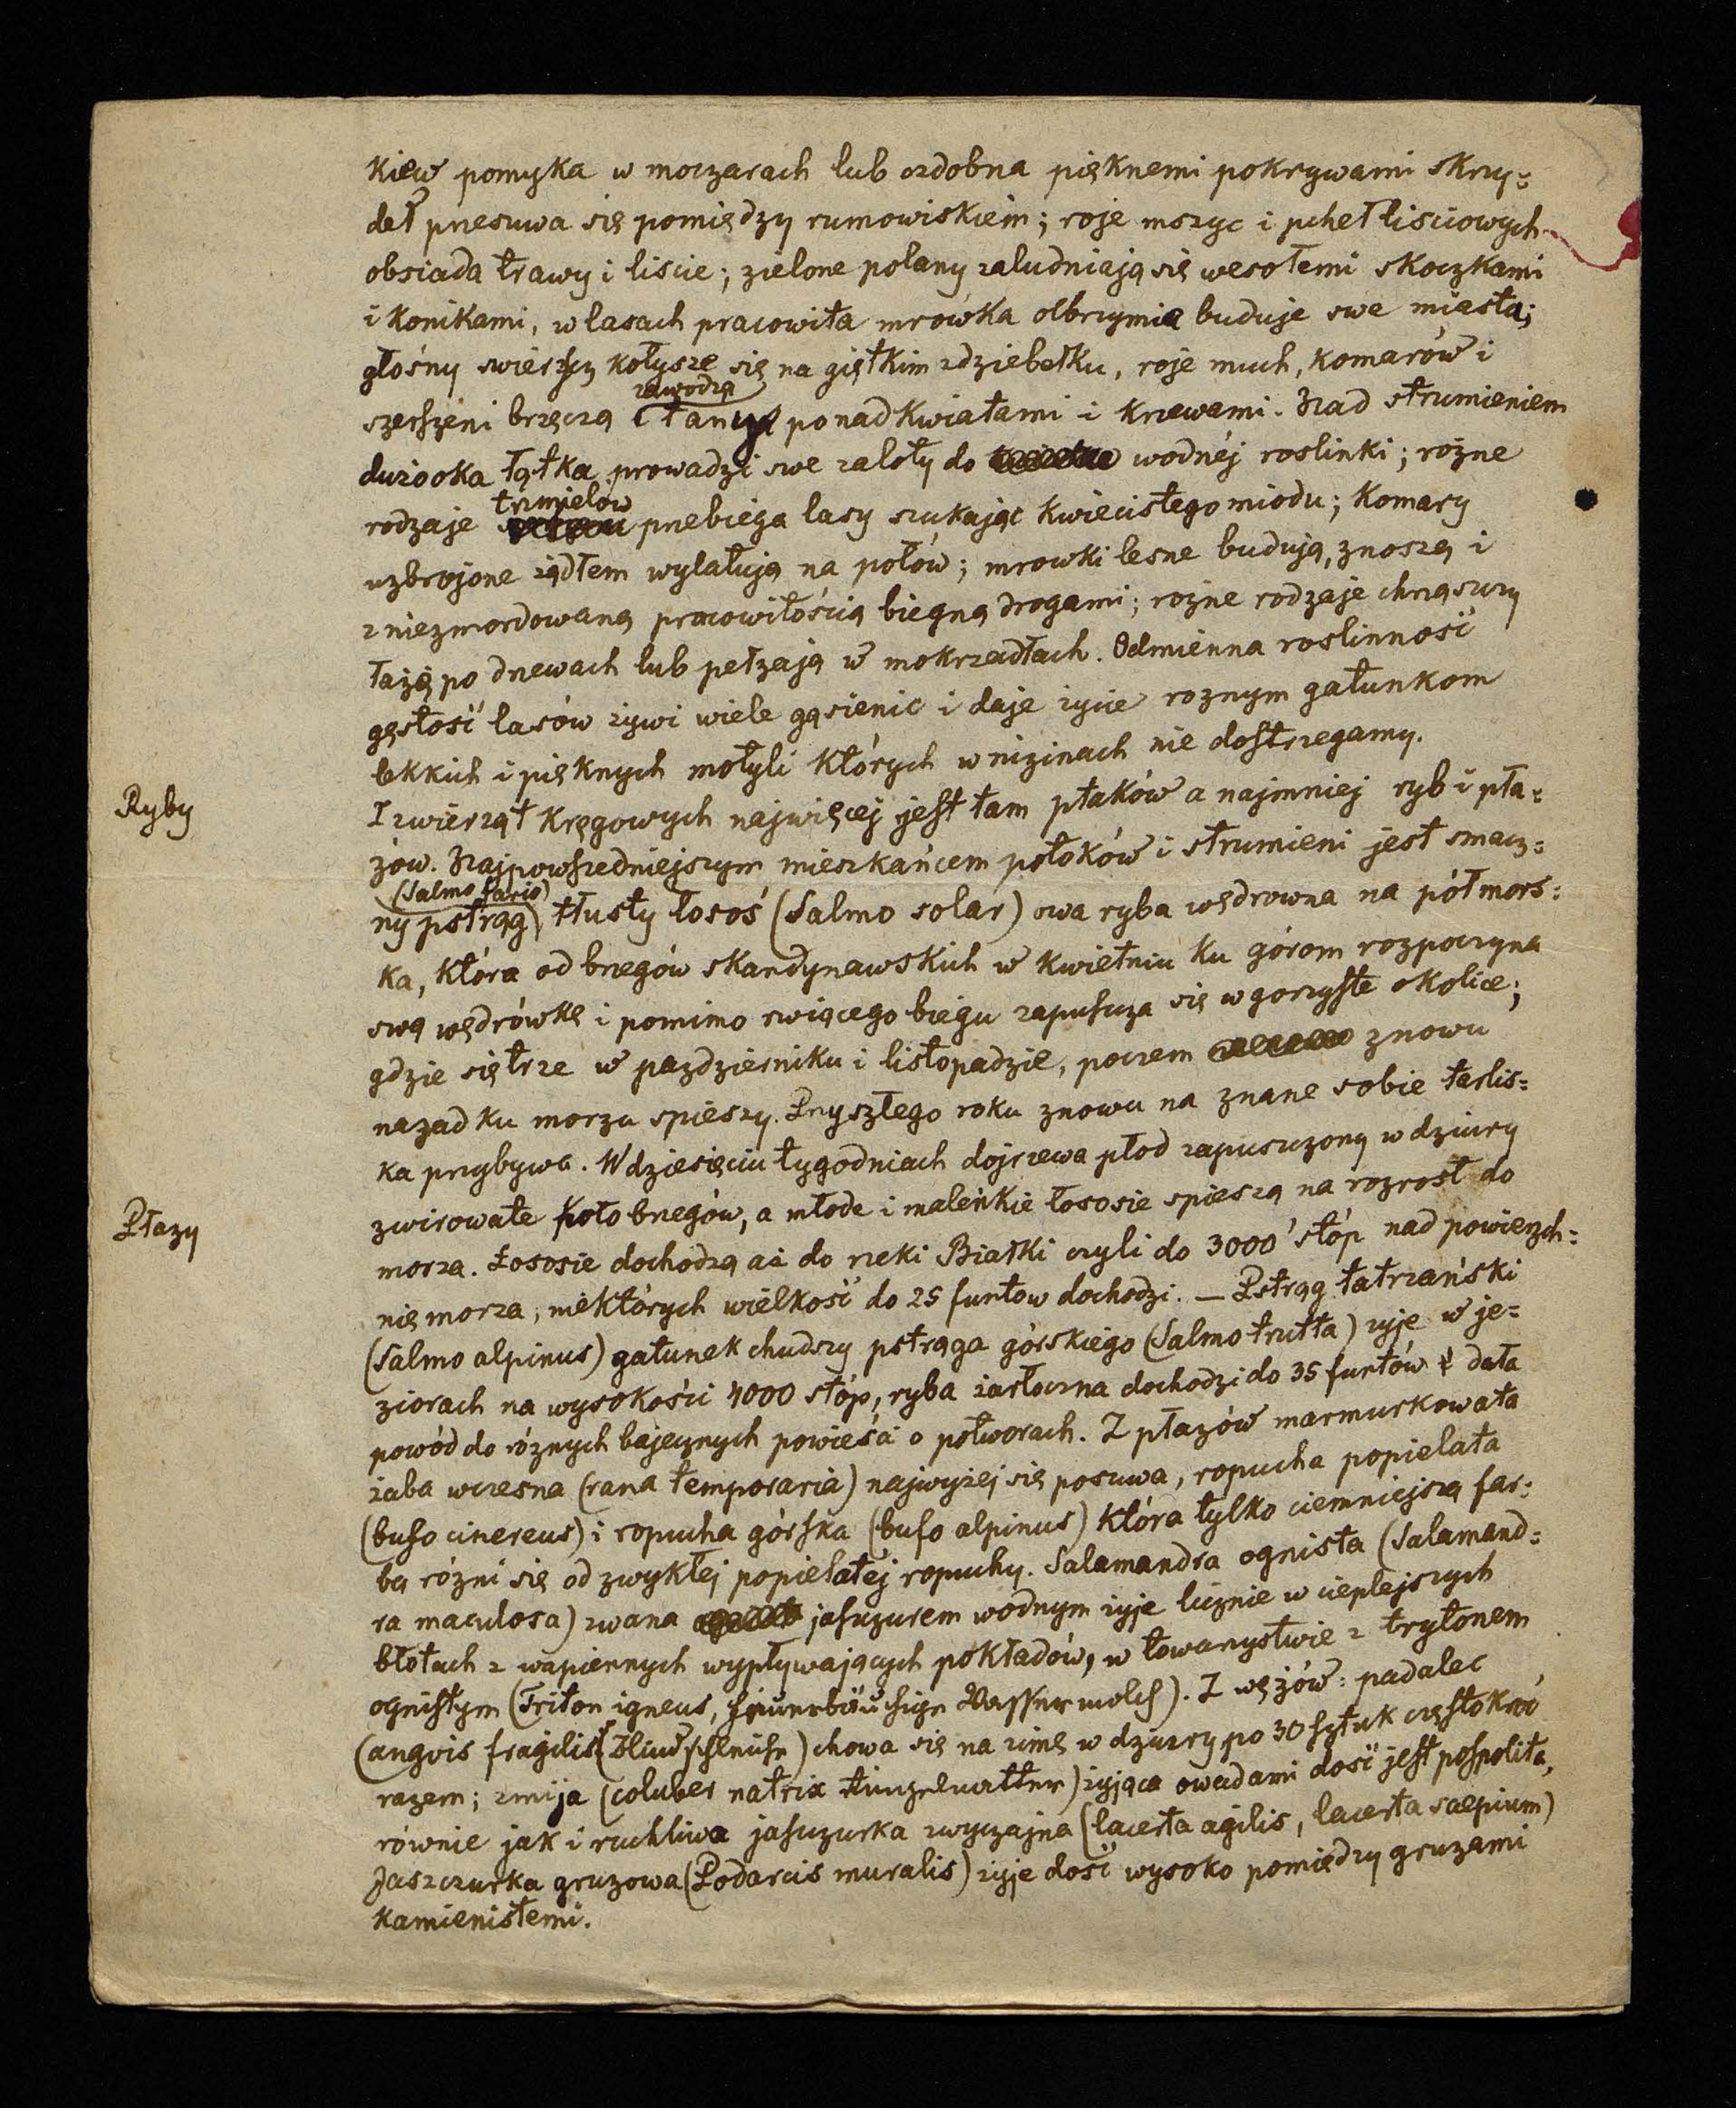 kiew pomyka w moczarach lub ozdobna pięknemi pokrywami skrzy=
deł przesuwa się pomiędzy rumowiskiem; roje mszyc i pcheł liściowych
obsiada trawy i liście; zielone polany zaludniają się wesołemi skoczkami
i konikami, w lasach pracowita mrówka olbrzymia buduje swe miasta;
głośny swierszcz kołysze się na giętkim zdziebełku, roje much, komarów i
zawodzą
szerszeni brzęczą tany ponad kwiatami i krzewami. Nad strumieniem
dużooka łątka prowadzi swe zaloty do wodnéj roslinki; rożne
trzmielów
rodzaje przebiega lasy szukając kwiecistego miodu; komary
uzbrojone żądłem wylatują na połów; mrowki lesne budują, znoszą i
z niezmordowaną pracowitością biegną drogami; rożne rodzaje chrząszczy
łażą po drzewach lub pełzają w mokrzadłach. Odmienna roslinność
gęstość lasów żywi wiele gąsienic i daje życie roznym gatunkom
lekkich i pięknych motyli których w nizinach nie dostrzegamy.
Ryby
Z zwierząt kręgowych najwięcej jest tam ptaków a najmniej ryb i pła=
zów. Najpowszedniejszym mieszkańcem potoków i strumieni jest smacz=
(Salmo fario)
ny pstrąg, tłusty łosoś (Salmo solar) owa ryba wędrowna na pół mors=
ka, która od brzegów skandynawskich w kwietniu ku górom rozpoczyna
swą wędrówkę i pomimo rwiącego biegu zapuszcza się w gorzyste okolice;
gdzie się trze w pazdzierniku i listopadzie, poczem znowu
nazad ku morzu spieszy. Przyszłego roku znowu na znane sobie tarlis=
ka przybywa. W dziesięciu tygodniach dojrzewa płod zapuszczony w dziury
Płazy
zwirowate koło brzegów, a młode i maleńkie łososie spieszą na rozrost do
morza. Łososie dochodzą aż do rzeki Białki czyli do 3000' stóp nad powierzch=
nię morza, niektórych wielkość do 25 funtow dochodzi. — Pstrąg tatrzański
(Salmo alpinus) gatunek chudszy pstrąga górskiego (Salmo trutta) żyje w je=
ziorach na wysokości 4000 stóp, ryba żarłoczna dochodzi do 35 funtów dała
powód do różnych bajecznych powieści o potworach. Z płazów marmurkowata
żaba wczesna (rana temporaria) najwyżej się posuwa, ropucha popielata
(bufo cinereus) i ropucha górska (bufo alpinus) która tylko ciemniejszą far=
bą różni się od zwykłej popielatéj ropuchy. Salamandra ognista (Salamand=
ra maculosa) zwana jaszczurem wodnym żyje licznie w cieplejszych
błotach z wapiennych wypływających pokładów, w towarzystwie z trytonem
ognistym (Triton igneus, feuerbäuchige Wassermolch). Z wężów: padalec
(angvis fragilis Blindschleiche) chowa się na zimę w dziury po 30 sztuk częstokroć
razem; zmija (coluber natrix Ringelnatter) żyjąca owadami dość jest pospolita,
równie jak i ruchliwa jaszczurka zwyczajna (lacerta agilis, lacerta saepium)
Jaszczurka gruzowa (Podarcis muralis) żyje dość wysoko pomiędzy gruzami
kamienistemi.